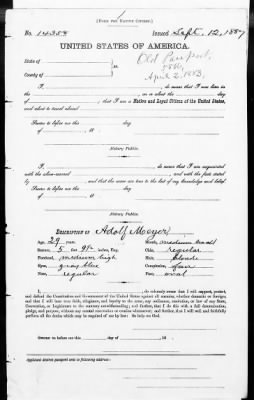 [FORM FOR NATIVE CITIZEN.]
No. 14353 Issued Sept. 12, 1887
UNITED STATES OF AMERICA.
State of
County of
ss.
Old Passport,
April 2, 1883.
I, , do swear that I was born in
, on or about the day
of , that I am a Native and Loyal Citizen of the United States,
and about to travel abroad
Sworn to before me this day
of , 18
Notary Public.
I, , do swear that I am acquainted
with the above-named , and with the facts stated
by , and that the same are true to the best of my knowledge and belief.
Sworn to before me this day
of , 18
Notary Public.
DESCRIPTION OF Adolf Meyer
Age, 29 years. Mouth, medium small
Stature, 5 feet inches, Eng. Chin, regular
Forehead, medium high Hair, blonde
Eyes, gray blue Complexion, fair
Nose, regular Face, oval
I, , do solemnly swear that I will support, protect,
and defend the Constitution and Government of the United States against all enemies, whether domestic or foreign;
and that I will bear true faith, allegiance, and loyalty to the same, any ordinance, resolution, or law of any State,
Convention, or Legislature to the contrary notwithstanding; and further, that I do this with a full determination,
pledge, and purpose, without any mental reservation or evasion whatsoever; and further, that I will well and faithfully
perform all the duties which may be required of me by law: So help me God.
Sworn to before me this day of , 18
Applicant desires passport sent to following address: